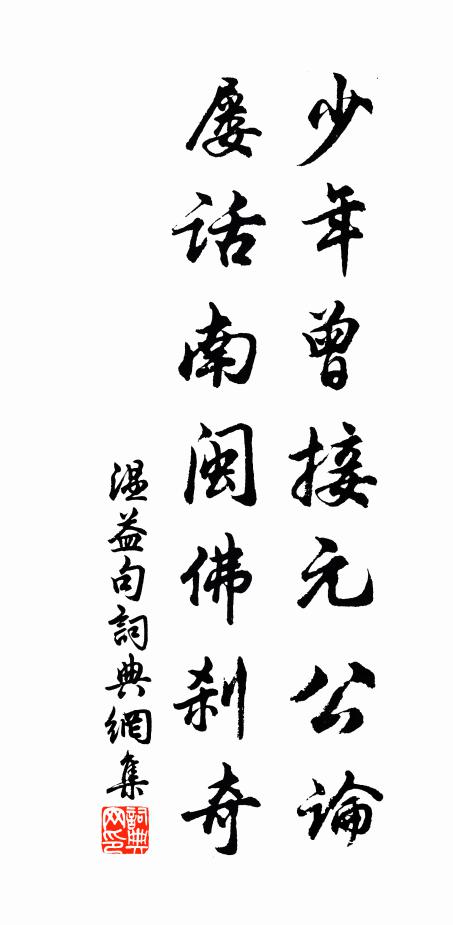 少年曾接元公論
屢話南閩佛刹奇
温益句詞典網集
詞典网印